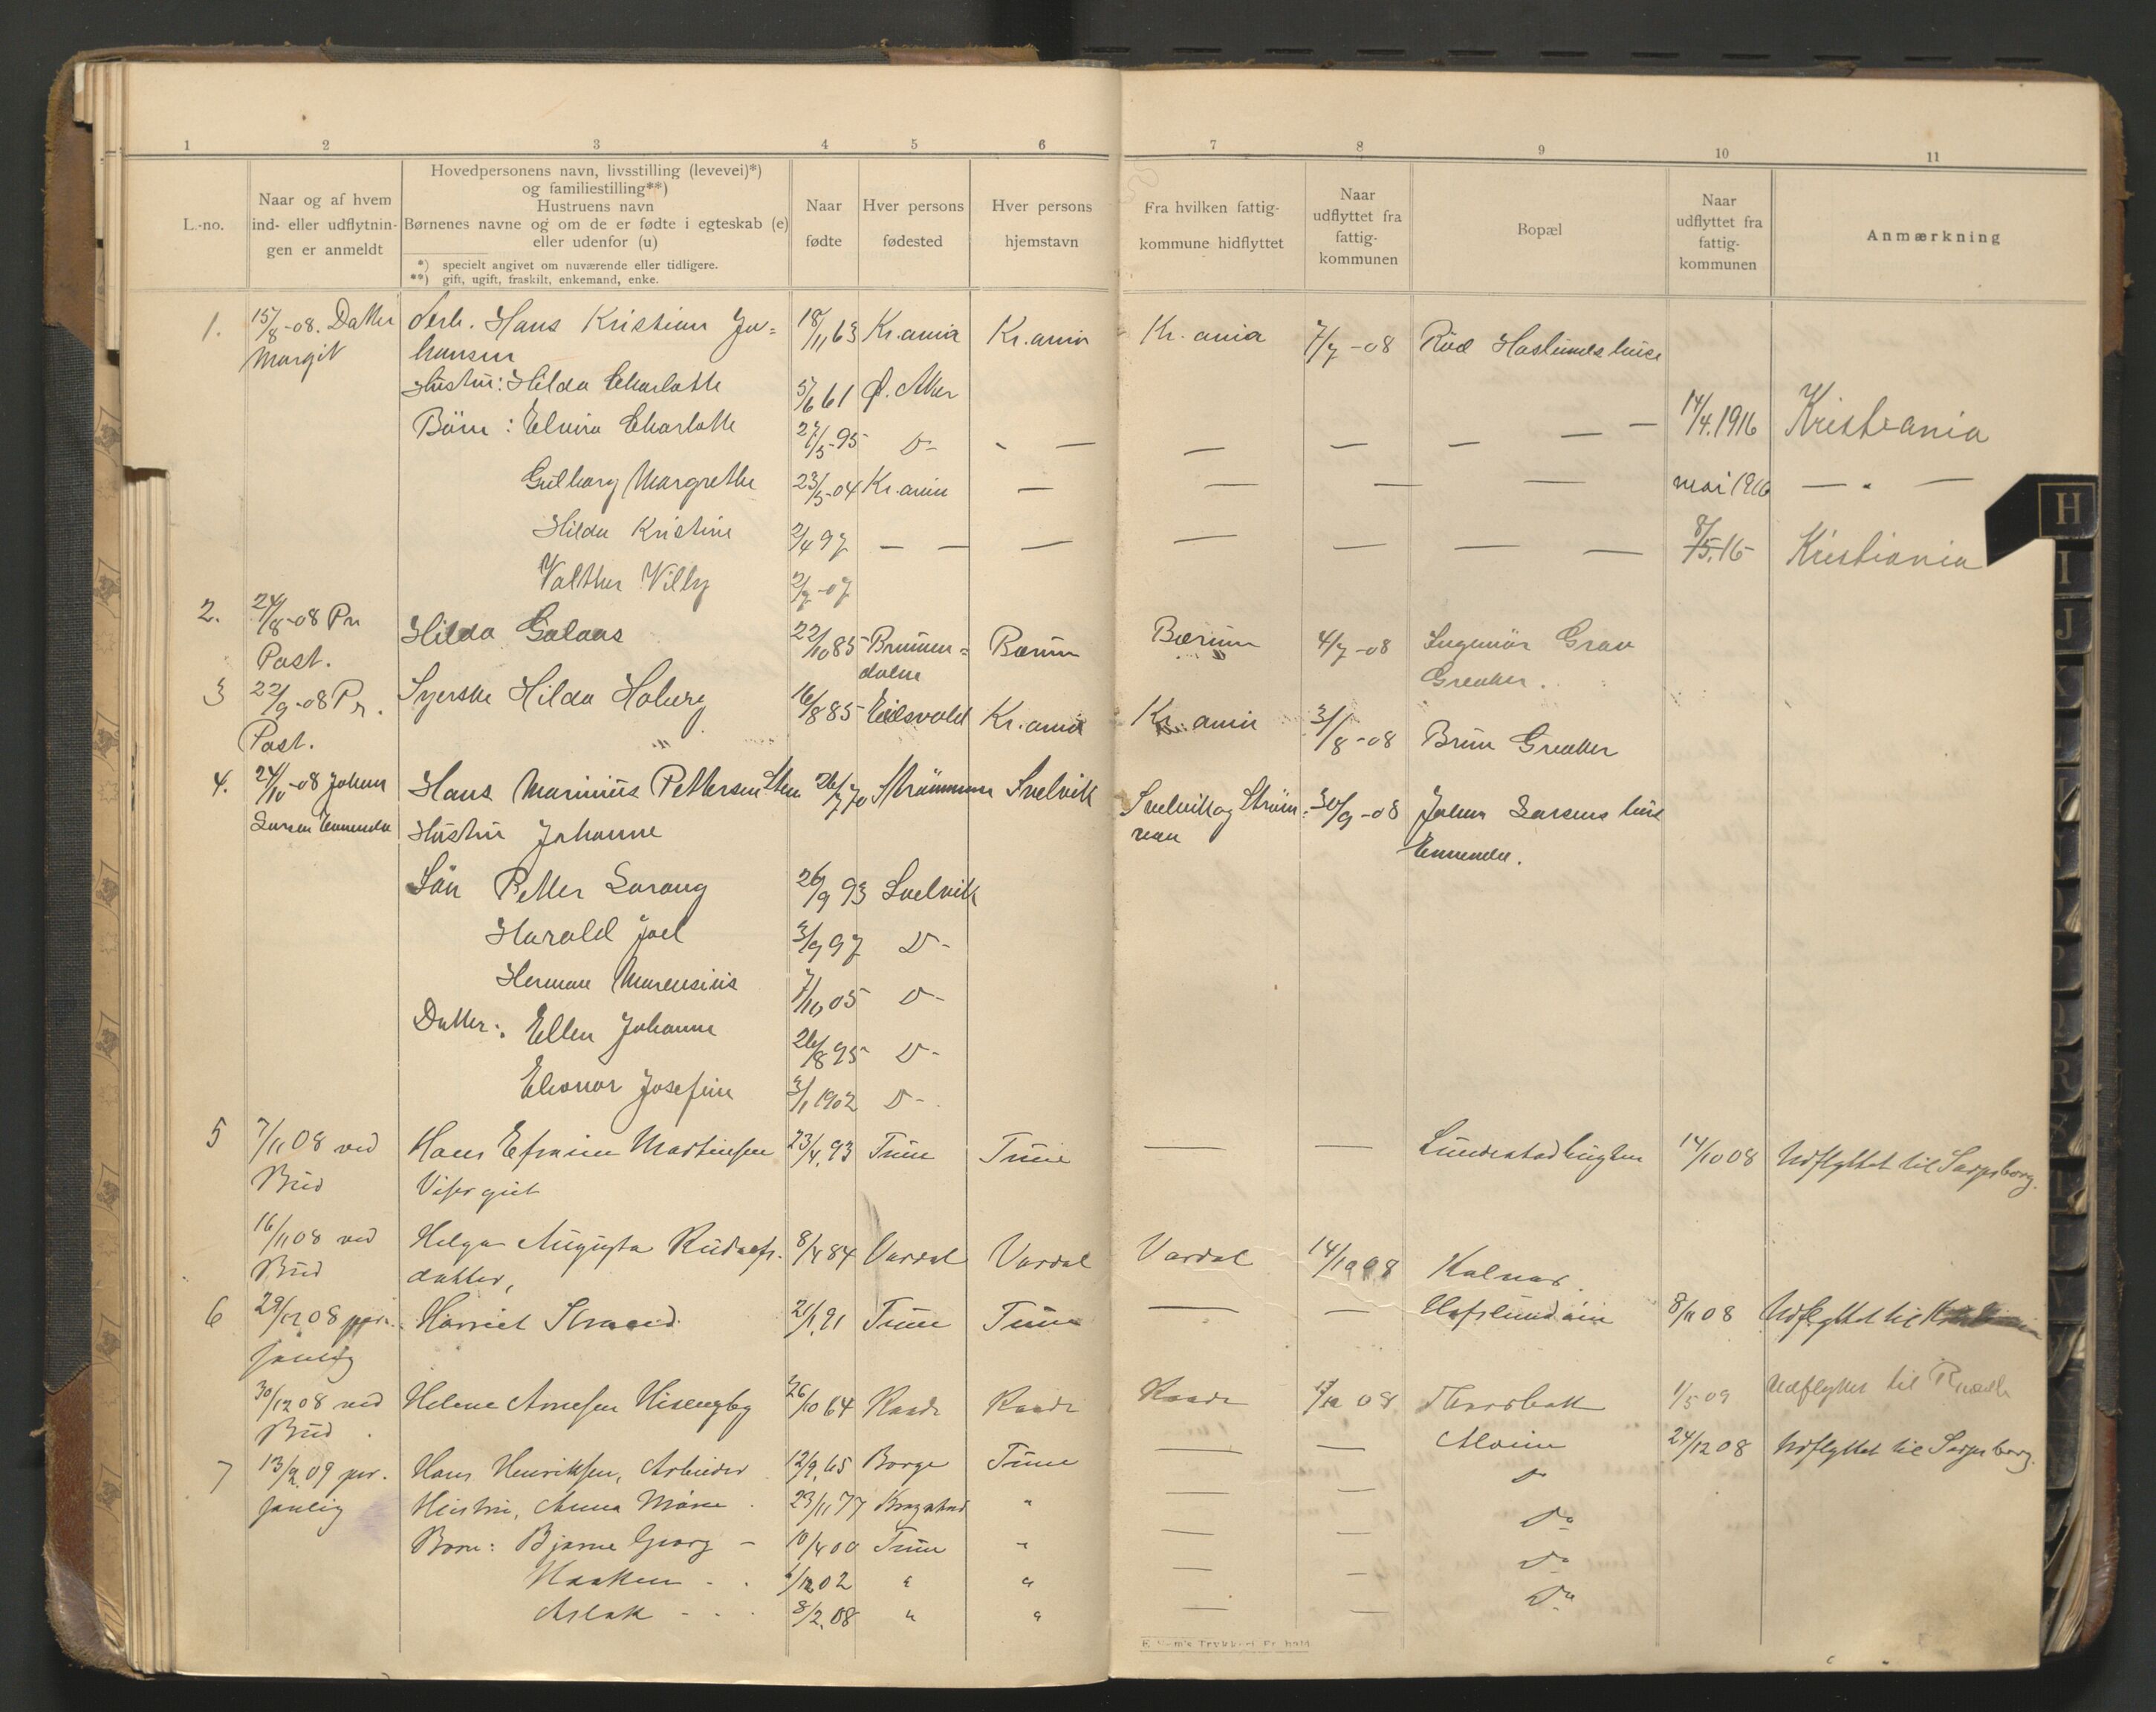 1 2 3 4 5 6 7 8 9 10 11
L.-no.
Naar og af hvem
ind- eller udflytnin-
gen er anmeldt
Hovedpersonens navn, livsstilling (levevei)*)
og familiestilling**)
Hustruens navn
Børnenes navne og om de er fødte i egteskab (e)
eller udenfor (u)
*) specielt angivet om nuværende eller tidligere.
**) gift, ugift, fraskilt, enkemand, enke.
Naar
fødte
Hver persons
fødested
Hver persons
hjemstavn
Fra hvilken fattig-
kommune hidflyttet
Naar
udflyttet fra
fattig-
kommunen
Bopæl
Naar
udflyttet fra
fattig-
kommunen
Anmærkning
1. 15/8-08. Datter Hans Kristian Jo= 18/11 63 Kr.ania Kr.ania Kr.ania 7/7-08 Röd Haslunds huse
Margit hansen
Hustru: Hilda Charlotte 5/6 61 Ø. Aker
Börn: Elvira Charlotte 27/5-95 D- - — — — — — — 14/4.1916 Kristiania
Gulborg Margrethe 23/5-04 Kr.ania — — — — mai 1916 — " —
Hilda Kristine 2/4 97 — — — — — — — 8/5.16 Kristiania
Valther Villy 2/7-07
2. 24/8-08 Pr Hilda Galaas 22/10 85 Brumun= Bærum Bærum 4/7-08 Ingeniör Grau
Post. dalen Greaker.
3 22/9-08 Pr. Syerske Hilda Hoberg 16/8 85 Eidsvold Kr.ania Kr.ania 31/8-08 Brum Greaker
Post.
4. 24/10-08 Johan Hans Marinius Pettersen Sten 26/7 70 Strömmen Svelvik Svelvik og Ström= 30/9-08 Johan Larsens hus
Larsen Hustru Johanne
Sön Petter Lorang 26/9 93 Svelvik
Harald Joel 3/9 97 D-
Herman Marensius 7/10 05 D-
Datter: Ellen Johanne 26/8 95 D-
Eleonor Josefine 3/1 1902 D-
5 7/11 08 ved Hans Efraim Martinsen 23/4.93 Tune Tune — — 14/10 08 Udflyttet til Sarpsborg.
Bud Visergut
16/11 08 ved Helga Augusta Rudolfs. 8/4 84 Vardal Vardal Vardal 14/10 08 Kalnes
Bud datter,
6 29/12 08 per. Harriet Strand. 21/1.91 Tune Tune — — Hafslundsöen 8/11 08 Udflyttet til
sonlig
30/12 08 ved Helene Arnesen Hisengby 26/10 64 Raade Raade Raade 08 Thorsbak 1/5 09 Udflyttet til
Bud.
7 13/2.09 per. Hans Henriksen, Arbeider 12/9.65 Borge Tune — — Alvim 24/12 08 Udflyttet til Sarpsborg.
sonlig Hustru, Anna Marie 23/11.77 " — — Do
Born: Bjarne Georg - 10/4 00 Tune " — — Do
Haakon - . 02 " " — — Do
Aslak - . . 8/2.08 " " — — Do
H
I
J